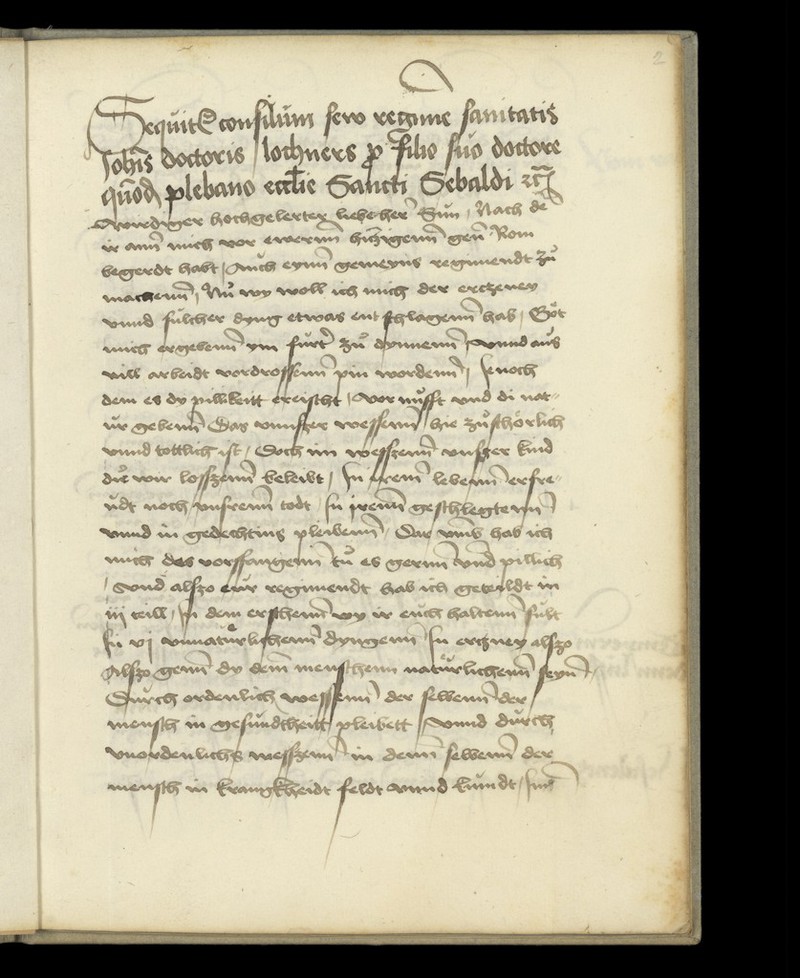 2
Sequit consilium seu regime sanitatis
Johis doctoris lochners p filio suo doctore
quod plebano ecclie Sancti Sebaldi
Wirdiger hochgelerter lieber her Sun, Nach de
ir ann mich vor ewerm hinzigenn gen Rom
begerdt habt, Auch eynn gemeyns regimendt zu
machenn, Nu wy woll ich mich der erczeney
vnnd sulcher dyng etwas ent schlagenn hab, Got
mich ergebenn ym furt zu dynnenn, vnnd aus
vill arbeidt vordrossenn pin wordenn, Jenoch
dem es dy pillikeitt ereischt, vor nufft vnd di nat-
ur gebenn Das vnnszer wessenn hie zusthorlich
vnnd tottlich ist, Doch im wesszenn vnszer kind
die wir losszenn beleibt, In irem lebenn erfre-
udt noch vnsrenn todt, In irenn geschlegtenn
vnnd in gedechtnis pleibenn, Dar vmb hab ich
mich des vorffangenn tu es gernn vnd pillich
, vnd alszo eur regimendt hab ich geteyldt in
iij teill, In dem erschenn wy ir euch haltenn sult
In vj vnnaturlichenn dyngenn In erczney alszo
Alszo genn dy dem menschenn naturlichenn seyn,
Durch ordenlich wesssenn der selbenn der
mensch in gesundtheitt pleibett, vnnd durch
vnordenlichs wesszenn in denn selbenn der
mensch in krangkheidt feldt vnnd kumdt,